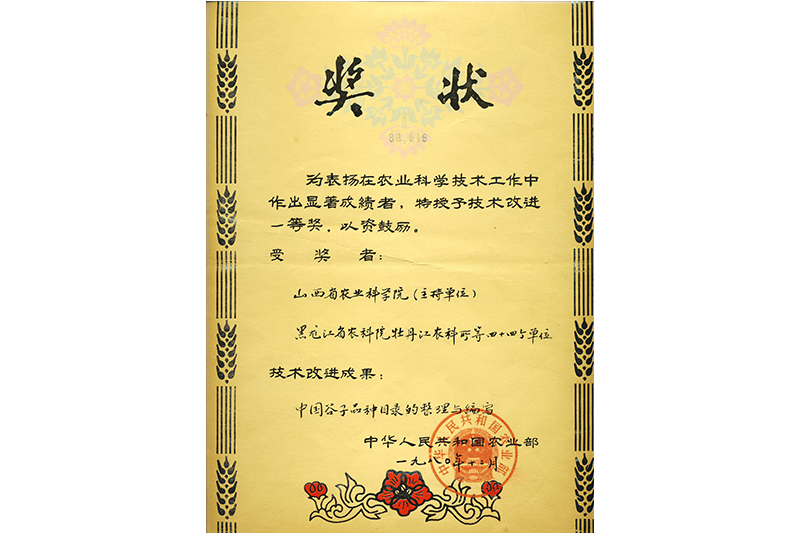 奖状
为表扬在农业科学技术工作中
作出显著成绩者，特授予技术改进
一等奖，以资鼓励。
受奖者：
山西省农业科学院（主持单位）
黑龙江省农科院牡丹江农科所等四十四个单位
技术改进成果：
中国谷子品种目录的整理与编写
中华人民共和国农业部
一九八〇年十二月
中华人民共和国农业部